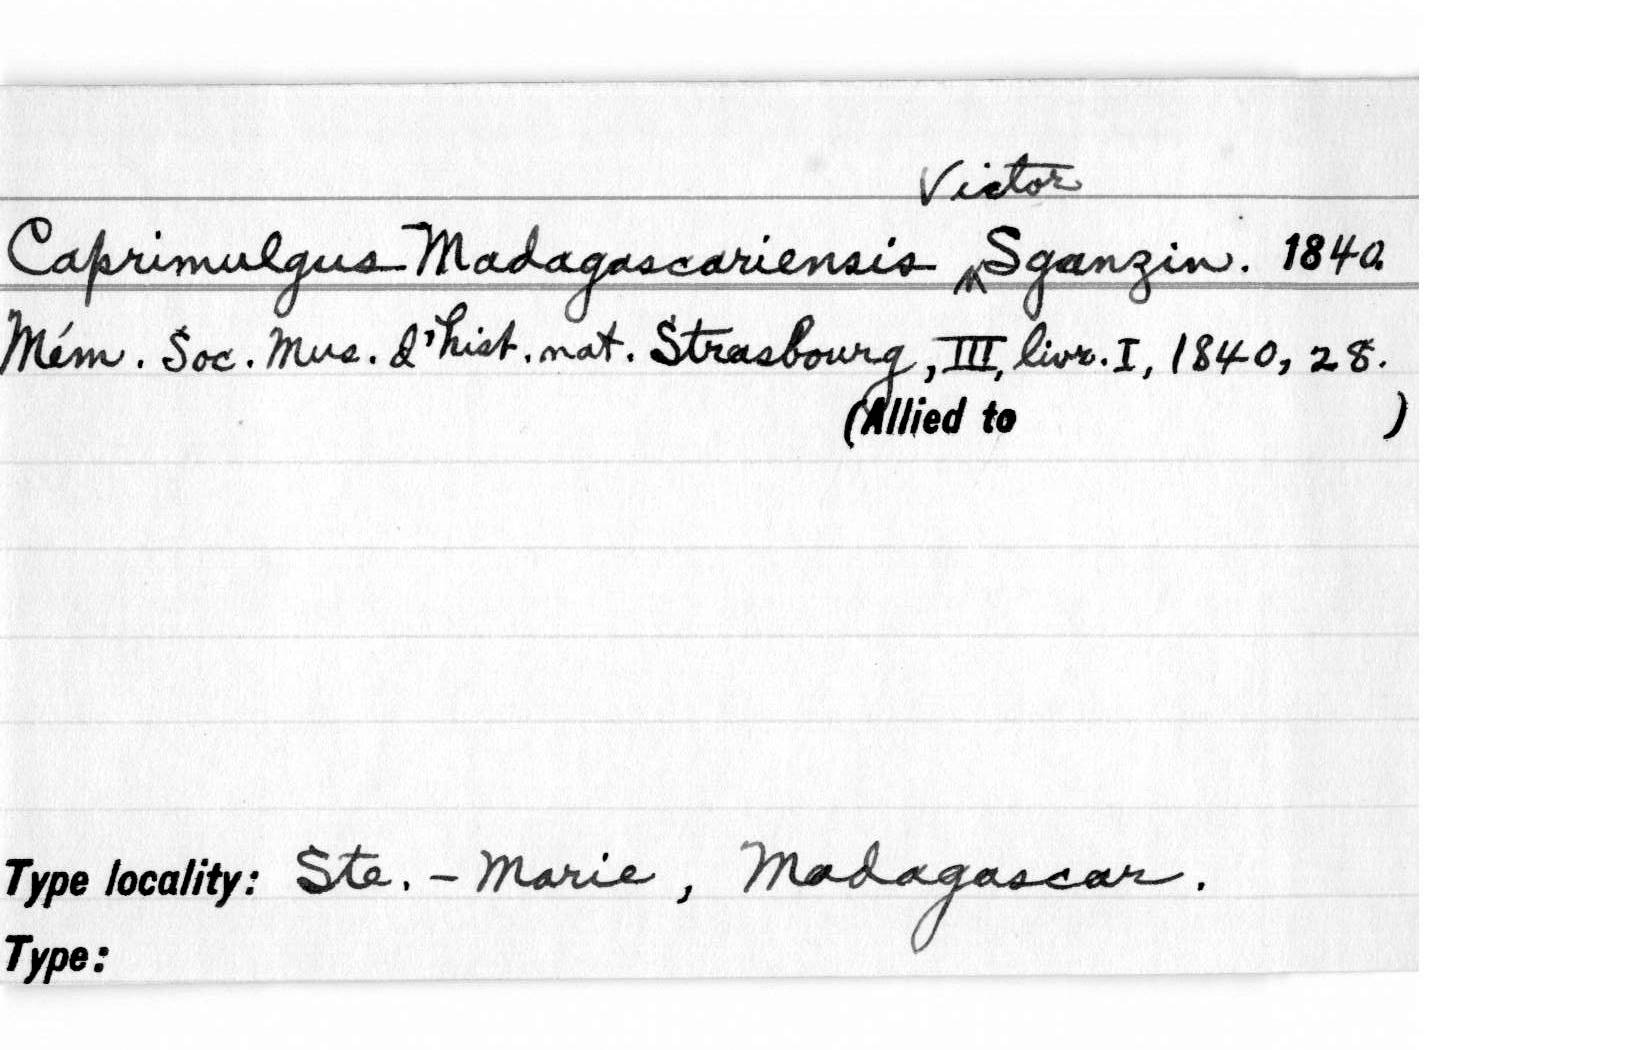 Victor
Caprimulgus Madagascariensis ^ Sganzin. 1840.
Mém. Soc. Mus. d'hist. nat. Strasbourg, III, livr. I, 1840, 28.
(Allied to )
Type locality: Ste. - Marie, Madagascar.
Type: